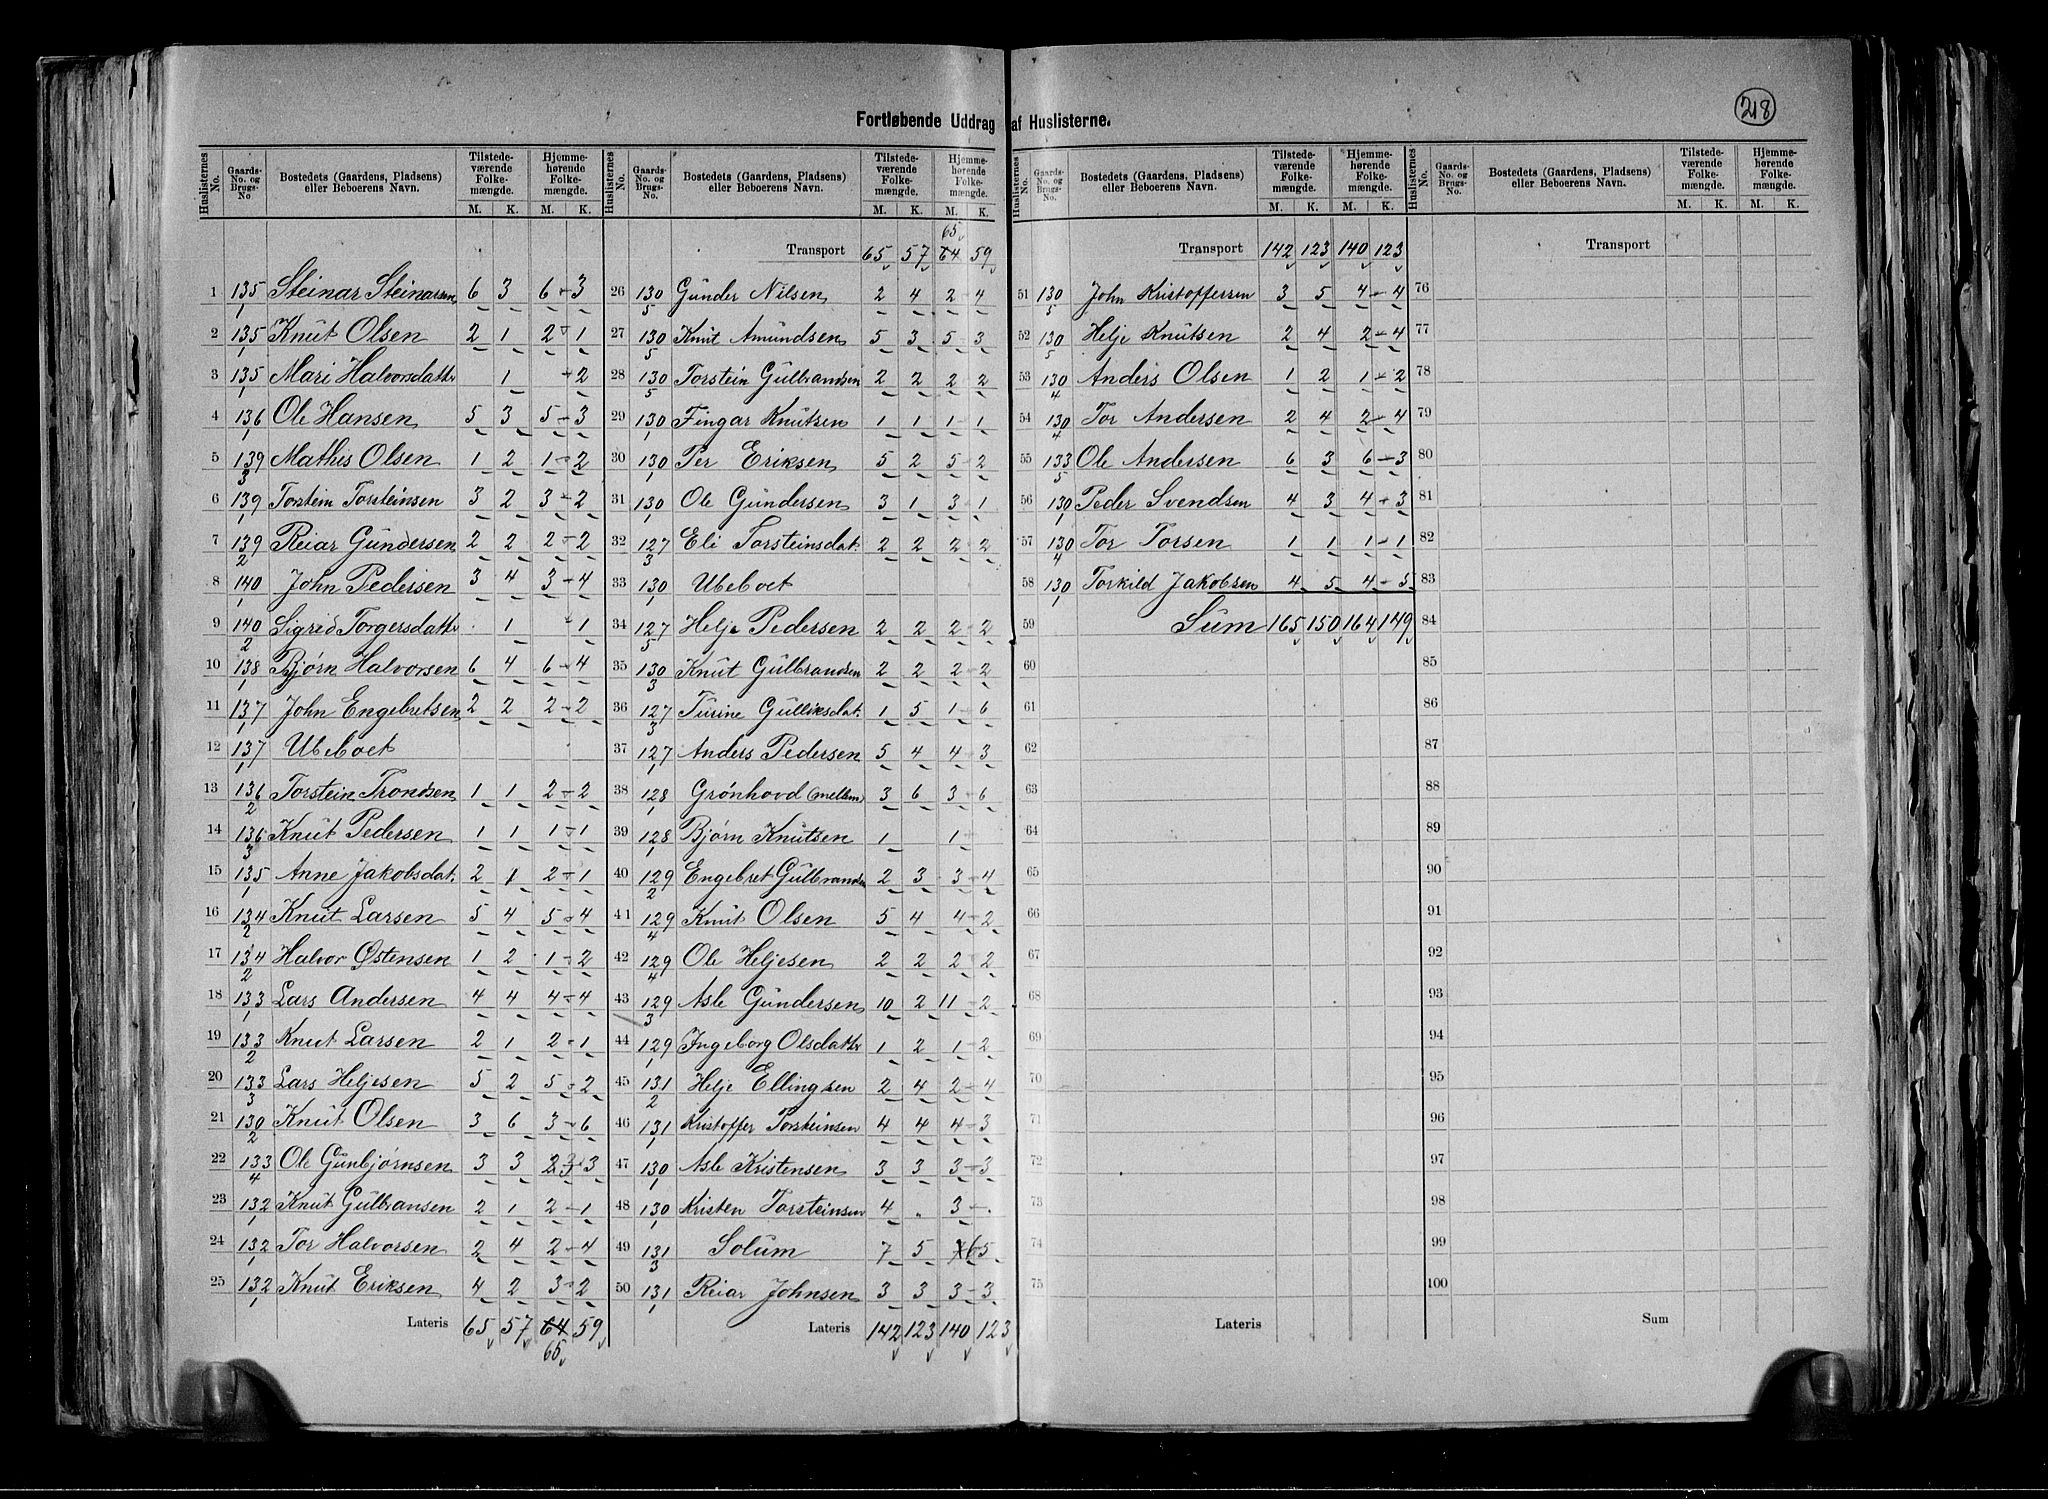 218
Fortløbende Uddrag af Huslisterne.
Huslisternes No. Gaards-No. og Brugs-No Bostedets (Gaardens, Pladsens) eller Beboerens Navn. Tilstedeværende Folkemængde. Hjemmehørende Folkemængde.
M. K. M. K.
1 135/1 Steinar Steinarsen 6 3 6 3
2 135/1 Knut Olsen 2 1 2 1
3 135/1 Mari Halvorsdattr 1 2
4 136/1 Ole Hansen 5 3 5 3
5 139/3 Mathis Olsen 1 2 1 2
6 139/1 Torstein Torsteinsen 3 2 3 2
7 139/2 Reiar Gundersen 2 2 2 2
8 140/1 John Pedersen 3 4 3 4
9 140/2 Sigrid Torgersdattr 1 1
10 138/1 Bjørn Halvorsen 6 4 6 4
11 137/1 John Engebretsen 2 2 2 2
12 137/1 Ubeboet
13 136/2 Torstein Trondsen 1 1 2 2
14 136/3 Knut Pedersen 1 1 1 1
15 135/1 Anne Jakobsdat. 2 1 2 1
16 134/2 Knut Larsen 5 4 5 4
17 134/2 Halvor Østensen 1 2 1 2
18 133/1 Lars Andersen 4 4 4 4
19 133/2 Knut Larsen 2 1 2 1
20 133/3 Lars Heljesen 5 2 5 2
21 130/2 Knut Olsen 3 6 3 6
22 133/4 Ole Gunbjørnsen 3 3 2 3 3
23 132/1 Knut Gulbransen 2 1 2 1
24 132/1 Tor Halvorsen 2 4 2 4
25 132/1 Knut Eriksen 4 2 3 2
Lateris 65 57 64 59
65
65
Transport 65 57 64 59
26 130/5 Gunder Nilsen 2 4 2 4
27 130/5 Knut Amundsen 5 3 5 3
28 130/5 Torstein Gulbrandsen 2 2 2 2
29 130/1 Fingar Knutsen 1 1 1 1
30 130/1 Per Eriksen 5 2 5 2
31 130/1 Ole Gundersen 3 1 3 1
32 127/3 Eli Torsteinsdat. 2 2 2 2
33 130/1 Ubeboet
34 127/5 Helje Pedersen 2 2 2 2
35 130/3 Knut Gulbrandsen 2 2 2 2
36 127/3 Turine Gulliksdat. 1 5 1 6
37 127/1 Anders Pedersen 5 4 4 3
38 128/1 Grønhovd (mellem) 3 6 3 6
39 128/1 Bjørn Knutsen 1 1
40 129/2 Engebret Gulbrandsen 2 3 3 4
41 129/4 Knut Olsen 5 4 4 2
42 129/4 Ole Heljesen 2 2 2 2
43 129/3 Asle Gundersen 10 2 11 2
44 129/1 Ingeborg Olsdattr 1 2 1 2
45 131/2 Helje Ellingsen 2 4 2 4
46 131/1 Kristoffer Torsteinsen 4 4 4 3
47 130/1 Asle Kristensen 3 3 3 3
48 130/1 Kristen Torsteinsen 4 " 3 "
49 131/3 Solum 7 5 6 5
50 131/1 Reiar Johnsen 3 3 3 3
Lateris 142 123 140 123
Huslisternes No. Gaards-No. og Brugs-No. Bostedets (Gaardens, Pladsens) eller Beboerens Navn. Tilstedeværende Folkemængde. Hjemmehørende Folkemængde.
M. K. M. K.
Transport 142 123 140 123
51 130/5 John Kristoffersen 3 5 4 4
52 130/5 Helje Knutsen 2 4 2 4
53 130/4 Anders Olsen 1 2 1 2
54 130/4 Tor Andersen 2 4 2 4
55 133/5 Ole Andersen 6 3 6 3
56 130/1 Peder Svendsen 4 3 4 3
57 130/4 Tor Torsen 1 1 1 1
58 130/1 Torkild Jakobsen 4 5 4 5
59 Sum 165 150 164 149
60
61
62
63
64
65
66
67
68
69
70
71
72
73
74
75
Lateris
Transport
76
77
78
79
80
81
82
83
84
85
86
87
88
89
90
91
92
93
94
95
96
97
98
99
100
Sum